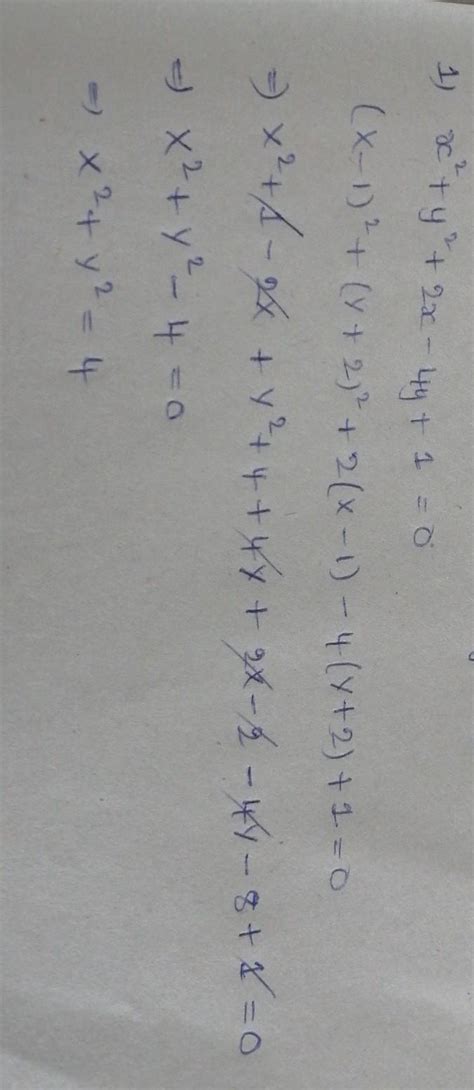 1) x² + y² + 2x - 4y + 1 = 0
(x-1)² + (y+2)² + 2(x-1) - 4(y+2) + 1 = 0
⇒ x² + 1 - 2x + y² + 4 + 4y + 2x - 2 - 4y - 8 + 1 = 0
⇒ x² + y² - 4 = 0
⇒ x² + y² = 4